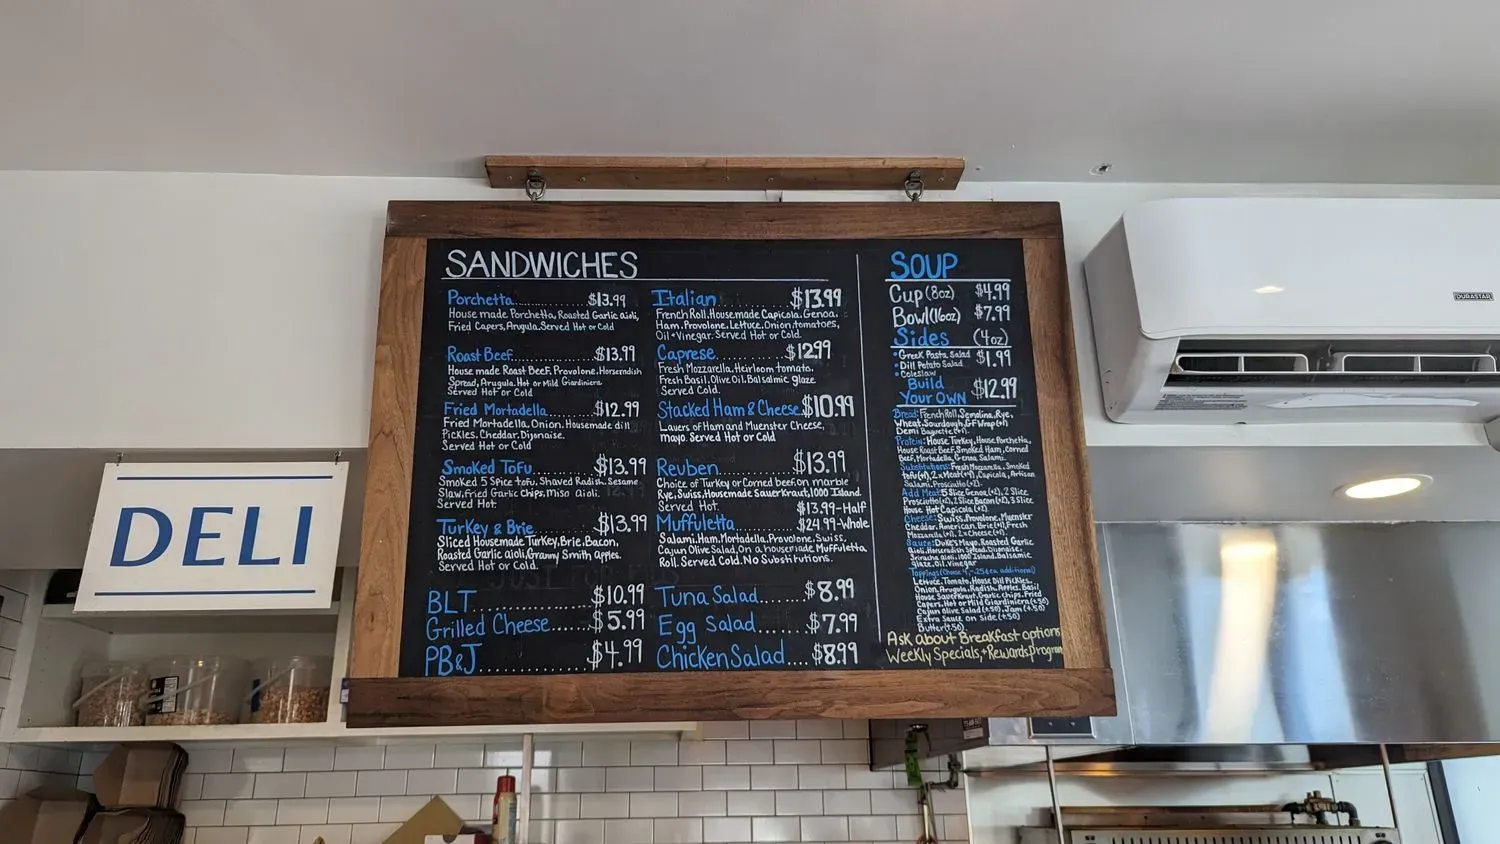 DELI
SANDWICHES
Porchetta.............$13.99
House made Porchetta, Roasted Garlic aioli,
Fried Capers, Arugula. Served Hot or Cold
Roast Beef..............$13.99
House made Roast Beef, Provolone, Horseradish
Spread, Arugula. Hot or Mild Giardiniera
Served Hot or Cold
Fried Mortadella........$12.99
Fried Mortadella, Onion, Housemade dill
Pickles, Cheddar, Dijonaise.
Served Hot or Cold
Smoked Tofu..........$13.99
Smoked 5 Spice tofu, Shaved Radish, Sesame
Slaw, Fried Garlic Chips, Miso Aioli.
Served Hot.
Turkey & Brie..........$13.99
Sliced Housemade Turkey, Brie, Bacon,
Roasted Garlic aioli, Granny Smith apples.
Served Hot or Cold.
BLT..................$10.99
Grilled Cheese......$5.99
PB&J................$4.99
Italian............$13.99
French Roll, Housemade Capicola, Genoa,
Ham, Provolone, Lettuce, Onion, tomatoes,
Oil+Vinegar. Served Hot or Cold
Caprese...........$12.99
Fresh Mozzarella, Heirloom tomato,
Fresh Basil, Olive Oil, Balsalmic glaze
Served Cold.
Stacked Ham & Cheese.$10.99
Layers of Ham and Muenster Cheese,
mayo. Served Hot or Cold
Reuben............$13.99
Choice of Turkey or Corned beef on marble
Rye, Swiss, Housemade Sauerkraut, 1000 Island
Served Hot.
$13.99-Half
Muffuletta..........$24.99-Whole
Salami, Ham, Mortadella, Provolone, Swiss,
Cajun Olive Salad, On a housemade Muffuletta
Roll. Served Cold. No Substitutions.
Tuna Salad......$8.99
Egg Salad......$7.99
Chicken Salad....$8.99
SOUP
Cup (8oz) $4.99
Bowl (16oz) $7.99
Sides (4oz)
• Greek Pasta Salad $1.99
• Dill Potato Salad
• Coleslaw
Build
Your OWN $12.99
Bread: French Roll, Semolina, Rye,
Wheat, Sourdough, GF Wrap(+1)
Demi Baguette(+1).
Protein: House Turkey, House Porchetta,
House Roast Beef, Smoked Ham, Corned
Beef, Mortadella, Genoa Salami.
Substitutions: Fresh Mozzarella, Smoked
tofu(+1), 2x Meat(+4), Capicola, Artisan
Salami, Prosciutto(+2).
Add Meat: 5 Slice Genoa(+2), 2 Slice
Prosciutto(+2), 2 Slice Bacon(+2), 3 Slice
House Hot Capicola(+2).
Cheese: Swiss, Provolone, Muenster
Cheddar, American, Brie(+1), Fresh
Mozzarella(+1), 2xCheese(+1).
Sauce: Duke's Mayo, Roasted Garlic
Aioli, Horseradish Spread, Dijonaise,
Sriracha aioli, 1000 Island, Balsamic
glaze, Oil, Vinegar
Toppings (Choose 4, ~25¢ ea. additional)
Lettuce, Tomato, House Dill Pickles,
Onion, Arugula, Radish, Apples, Basil
House Sauerkraut, Garlic chips, Fried
Capers, Hot or Mild Giardiniera(+.50)
Cajun olive Salad(+.50), Jam(+.50)
Extra Sauce on Side(+.50)
Butter(+.50)
Ask about Breakfast options
Weekly Specials, + Rewards Program
DURASTAR